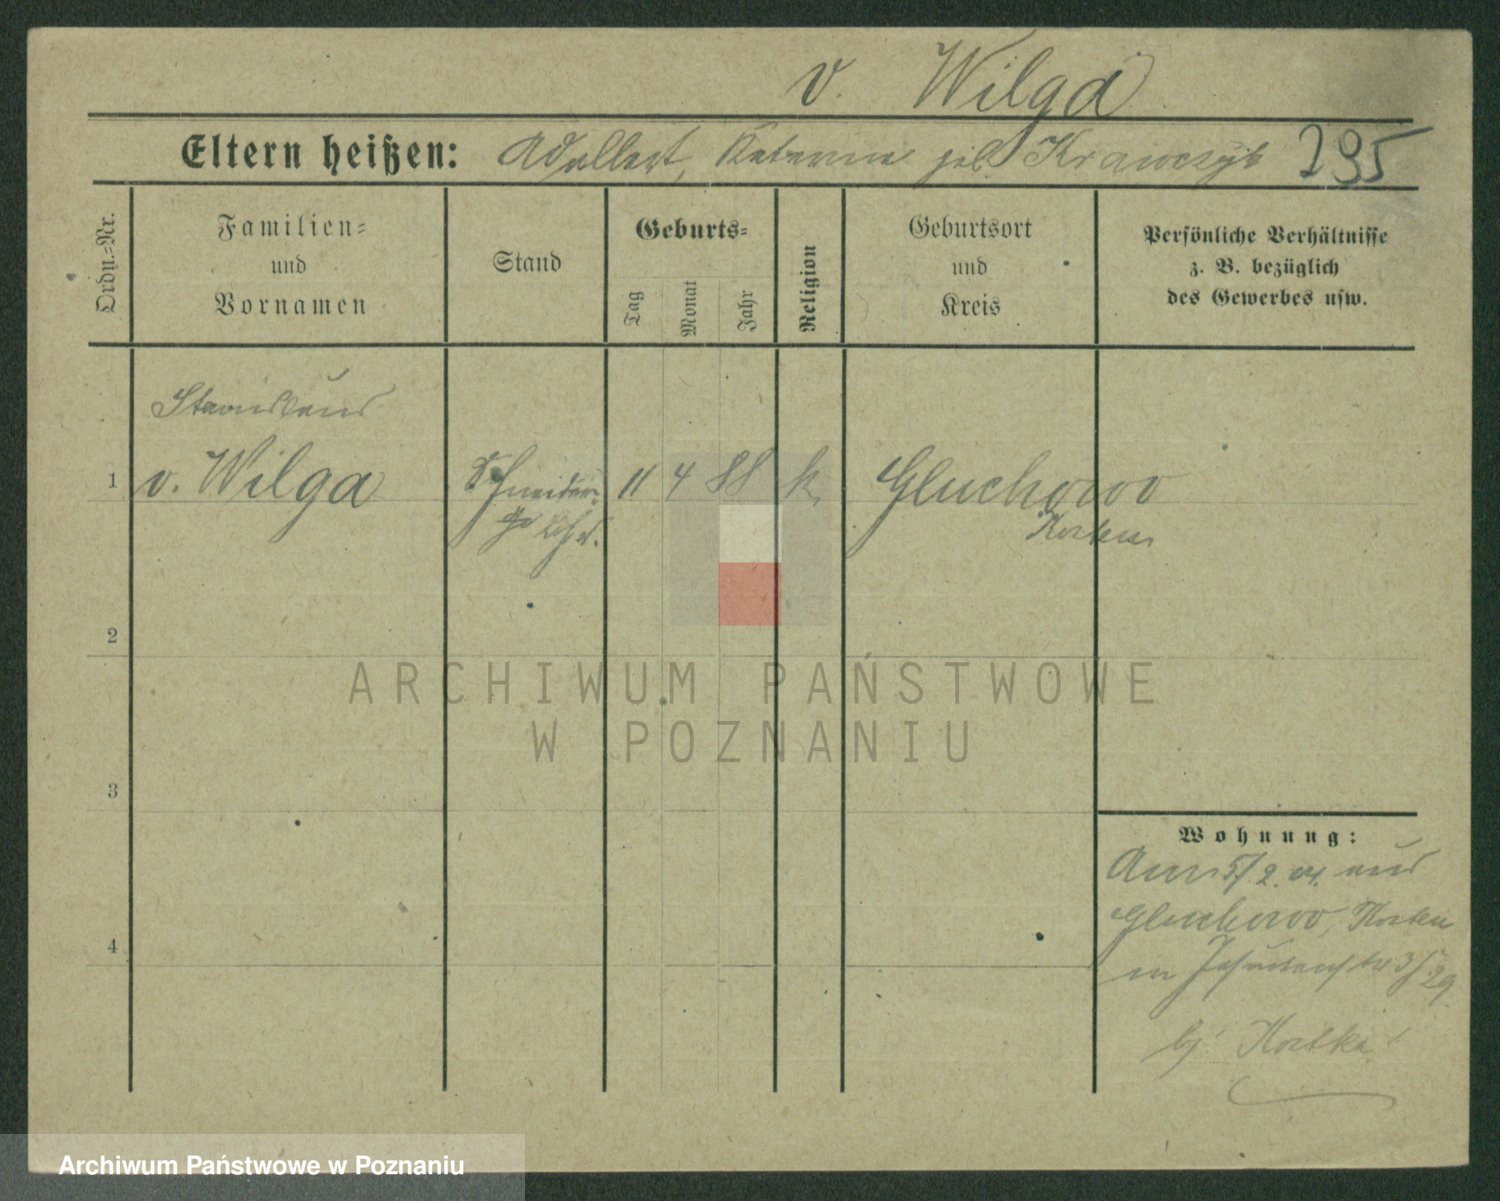 v. Wilga
Eltern heißen: Adalbert, geb. Krawczyk 295
Ordn.-Nr.
Familien-
und
Vornamen
Stand
Geburts-
Tag
Monat
Jahr
Religion
Geburtsort
und
Kreis
Persönliche Verhältnisse
z. B. bezüglich
des Gewerbes usw.
Stanislaus
1 v. Wilga Schneider- 11 4 88 k. Gluchowo
Kosten
2
3
4
Wohnung:
5/2. 04. aus
Gluchowo, Kosten
in
bei
ARCHIWUM PAŃSTWOWE
W POZNANIU
Archiwum Państwowe w Poznaniu